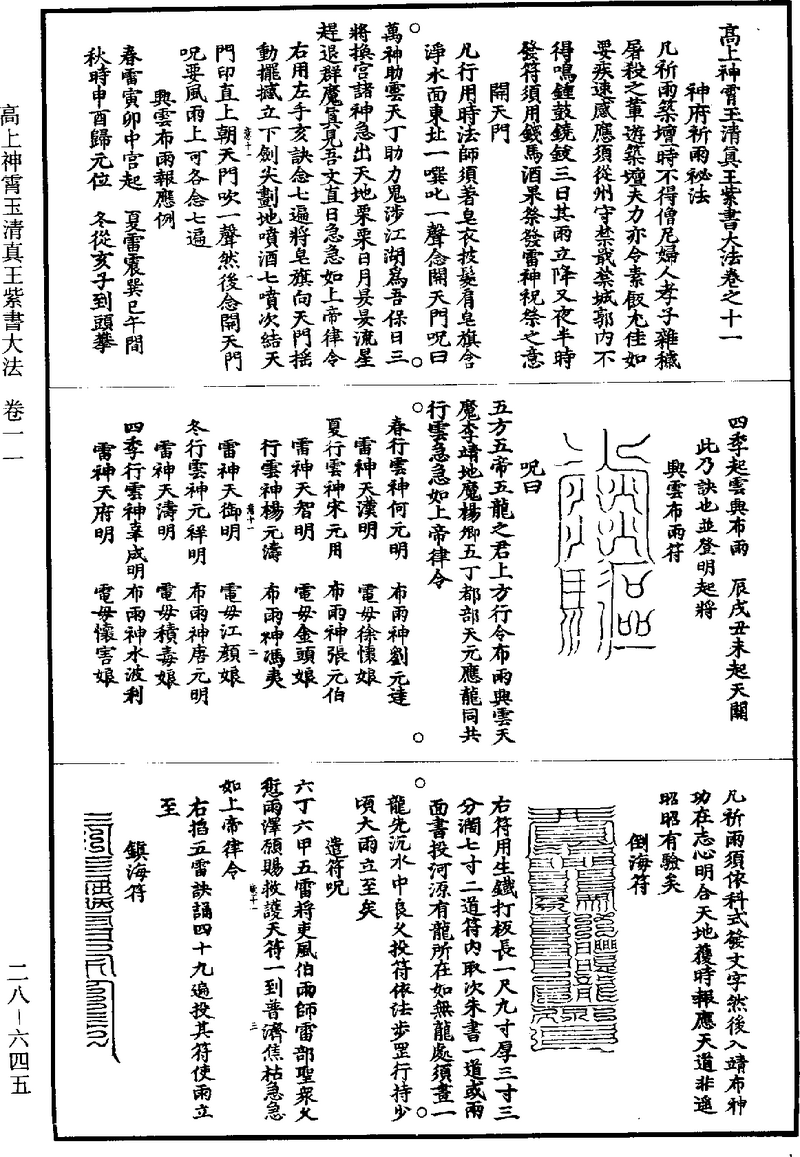 高上神霄玉清真王紫書大法卷之十一
神府祈雨秘法
凡祈雨築壇時不得僧尼婦人孝子雜穢
屠殺之輩遊築壇夫力亦令素飯尤佳如
要疾速感應須從州守禁戢禁城郭內不
得鳴鐘鼓鐃鈸三日其雨立降又夜半時
發符須用錢馬酒果祭發雷神祝祭之意
開天門
凡行用時法師須著皂衣披髮肩皂旗含
淨水面東北一噀叱一聲念開天門呪曰
萬神助雲天丁助力鬼涉江湖為吾保日三
將換宮諸神急出天地栗栗日月晃晃流星
趕退群魔莫見吾文直日急急如上帝律令
右用左手亥訣念七遍將皂旗向天門搖
動擺撼立下劍尖劃地噴酒七噴次結天
門印直上朝天門吹一聲然後念開天門
呪要風雨上可各念七遍
興雲布雨報應例
春雷寅卯中宮起　夏雷震巽巳午間
秋時申酉歸元位　冬從亥子到頭攀
四季起雲與布雨　辰戌丑未起天關
此乃訣也並登明起將
興雲布雨符
呪曰
五方五帝五龍之君上方行令布雨興雲天
魔李靖地魔楊卿五丁都部天元應龍同共
行雲急急如上帝律令
春行雲神何元明　布雨神劉元達
雷神天漢明　電母徐懷娘
夏行雲神宋元用　布雨神張元伯
雷神天智明　電母金頭娘
行雲神楊元濤　布雨神馮夷
雷神天御明　電母江顏娘
冬行雲神元繹明　布雨神唐元明
雷神天濤明　電母積毒娘
四季行雲神辜成明　布雨神水波利
雷神天府明　電母懷害娘
凡祈雨須依科式發文字然後入靖布神
功在志心明合天地覆時報應天道非遙
昭昭有驗矣
倒海符
右符用生鐵打板長一尺九寸厚三寸三
分濶七寸二道符內取次朱書一道或兩
面書投河源有龍所在如無龍處須畫一
龍先沉水中良久投符依法步罡行持少
頃大雨立至矣
遣符呪
六丁六甲五雷將吏風伯雨師雷部聖眾久
愆雨澤願賜救護天符一到普濟焦枯急急
如上帝律令
右掐五雷訣誦四十九遍投其符使雨立
至
鎮海符
高上神霄玉清真王紫書大法　卷一一
二八－六四五